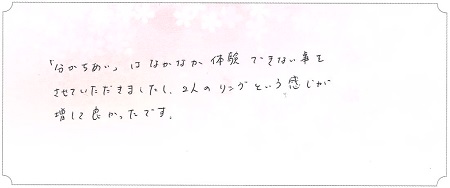 「分かちあい」はなかなか体験できない事を
させていただきましたし、2人のリングという感じが
増して良かったです。